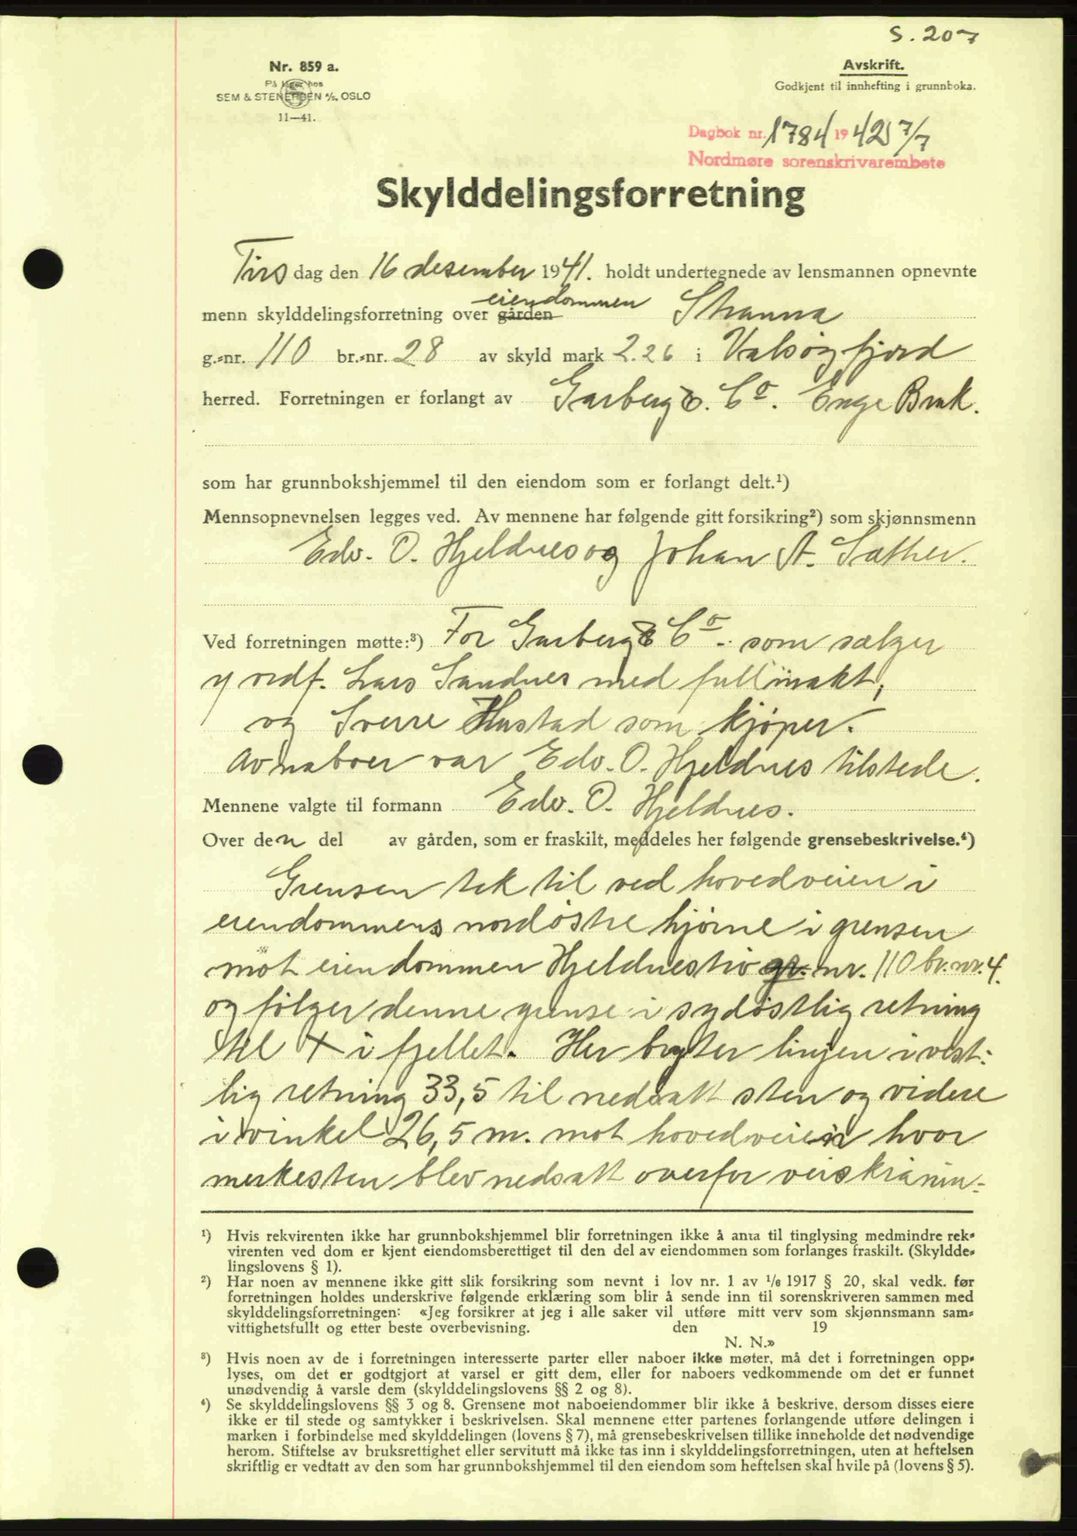 S. 207
Nr. 859 a.
På lager hos
SEM & STENERSEN A/S, OSLO
11—41.
Avskrift.
Godkjent til innhefting i grunnboka.
Dagbok nr. 1784 1942 7/7
Nordmøre sorenskrivarembete
Skylddelingsforretning
Tirsdag den 16 desember 1941. holdt undertegnede av lensmannen opnevnte
eiendommen
menn skylddelingsforretning over gården Stranna
g.-nr. 110 br.-nr. 28 av skyld mark 2.26 i Valsøyfjord
herred. Forretningen er forlangt av Garberg & Co. Enge Bruk.
som har grunnbokshjemmel til den eiendom som er forlangt delt.¹)
Mennsopnevnelsen legges ved. Av mennene har følgende gitt forsikring²) som skjønnsmenn
Edv. O. Hjeldnes og Johan A. Sæther.
Ved forretningen møtte:³) For Garberg & Co. som sælger
ordf. Lars Sandnes med fullmakt,
og Sverre Hustad som kjøper.
Av naboer var Edv. O. Hjeldnes tilstede.
Mennene valgte til formann Edv. O. Hjeldnes.
Over den del av gården, som er fraskilt, meddeles her følgende grensebeskrivelse.⁴)
Grensen tek til ved hovedveien i
eiendommens nordøstre hjørne i grensen
mot eiendommen Hjeldnes gr. nr. 110 br. nr. 4.
og følger denne grense i sydøstlig retning
til + i fjellet. Her bryter linjen i vest-
lig retning 33,5 til nedsatt sten og videre
i vinkel 26,5 m. mot hovedveien hvor
merkesten blev nedsatt overfor veiskrånin-
¹) Hvis rekvirenten ikke har grunnbokshjemmel blir forretningen ikke å anta til tinglysing medmindre rek-
virenten ved dom er kjent eiendomsberettiget til den del av eiendommen som forlanges fraskilt. (Skyldde-
lingslovens § 1).
²) Har noen av mennene ikke gitt slik forsikring som nevnt i lov nr. 1 av 1/6 1917 § 20, skal vedk. før
forretningen holdes underskrive følgende erklæring som blir å sende inn til sorenskriveren sammen med
skylddelingsforretningen: «Jeg forsikrer at jeg i alle saker vil utføre mitt verv som skjønnsmann sam-
vittighetsfullt og etter beste overbevisning. den 19
N. N.»
³) Hvis noen av de i forretningen interesserte parter eller naboer ikke møter, må det i forretningen opp-
lyses, om det er godtgjort at varsel er gitt dem, eller for naboers vedkommende om det er funnet
unødvendig å varsle dem (skylddelingslovens §§ 2 og 8).
⁴) Se skylddelingslovens §§ 3 og 8. Grensene mot naboeiendommer blir ikke å beskrive, dersom disses eiere
ikke er til stede og samtykker i beskrivelsen. Skal mennene etter partenes forlangende utføre delingen i
marken i forbindelse med skylddelingen (lovens § 7), må grensebeskrivelsen tillike inneholde det nødvendige
herom. Stiftelse av bruksrettighet eller servitutt må ikke tas inn i skylddelingsforretningen, uten at heftelsen
skriftlig er vedtatt av den som har grunnbokshjemmel til den eiendom som heftelsen skal hvile på (lovens § 5).